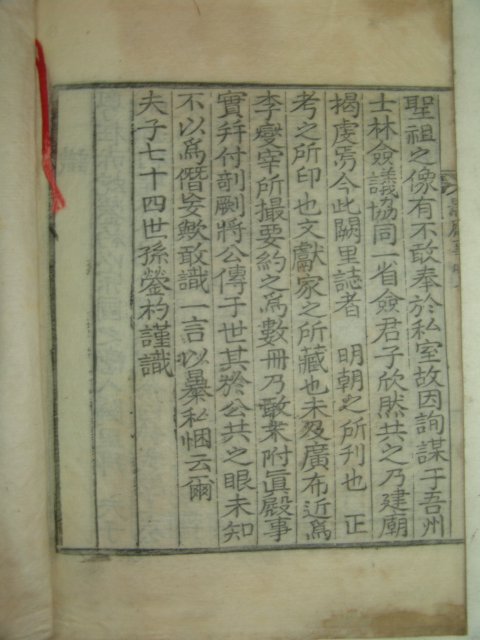 聖祖之像有不敢奉於私室故因詢謀于吾州
士林僉議協同一省僉君子欣然共之乃建廟
揭虔焉今此闕里誌者 明朝之所刊也 正
考之所印也文獻家之所藏也未及廣布近爲
李燮宰所撮要約之爲數冊乃敢衆附眞殿事
實幷付剞劂將公傳于世其於公共之眼未知
不以爲僭妄歟敢識一言以暴私悃云爾
夫子七十四世孫瑩杓謹識